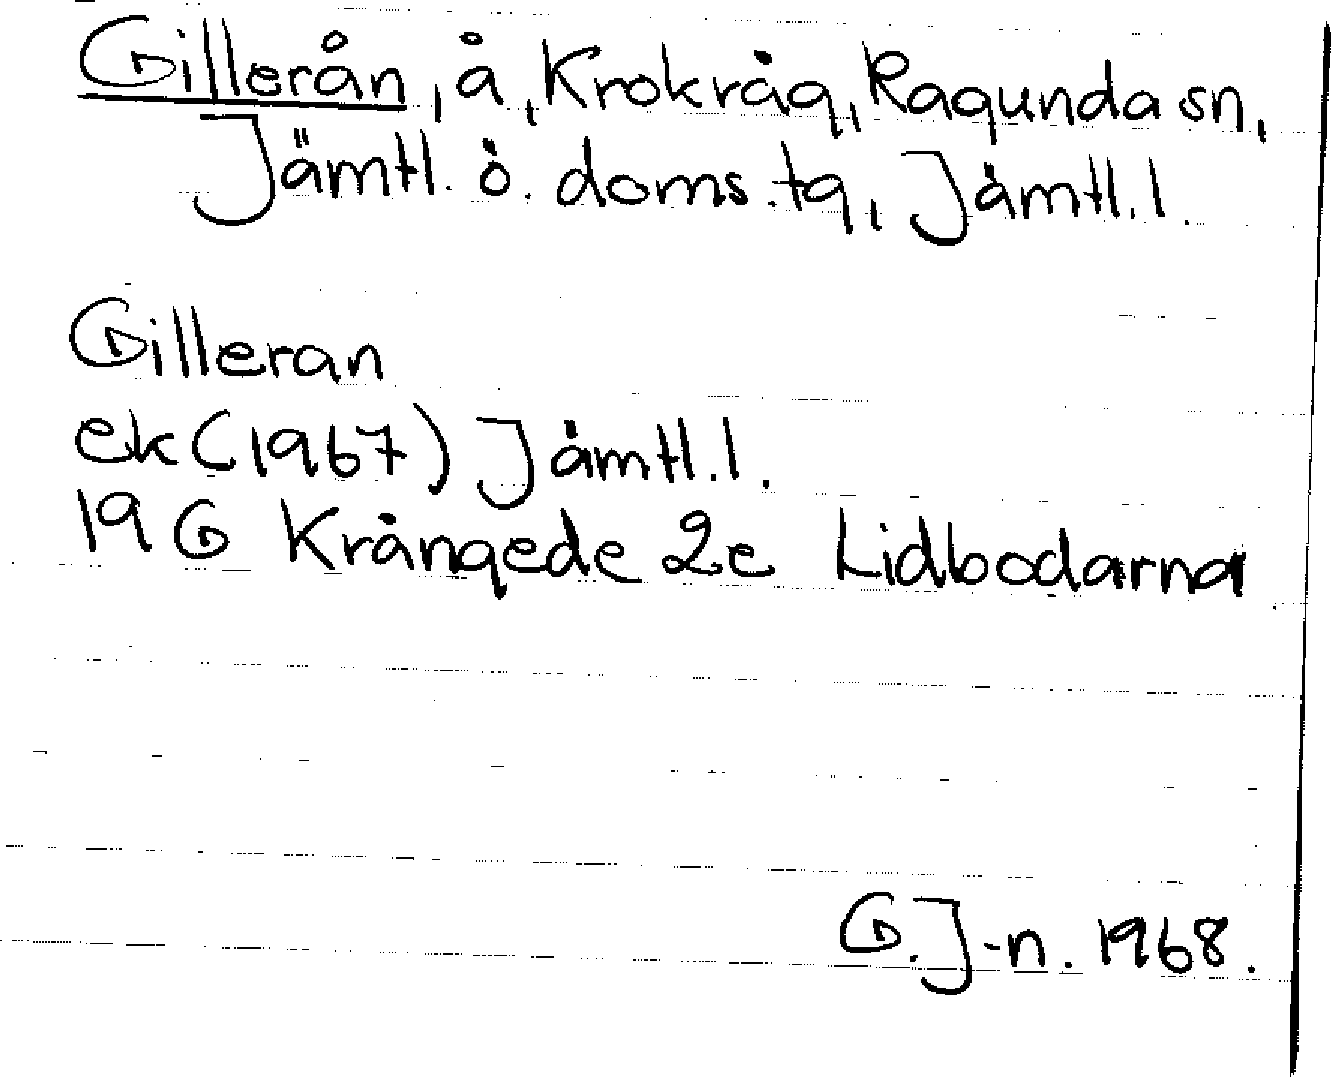 Gillerån, å, Krokvåg, Ragunda sn,
Jämtl. ö. doms. tg, Jämtl. l.
Gilleran
ek (1967) Jämtl. l.
19 G Krångede 2e Lidbodarna
G. J-n. 1968.